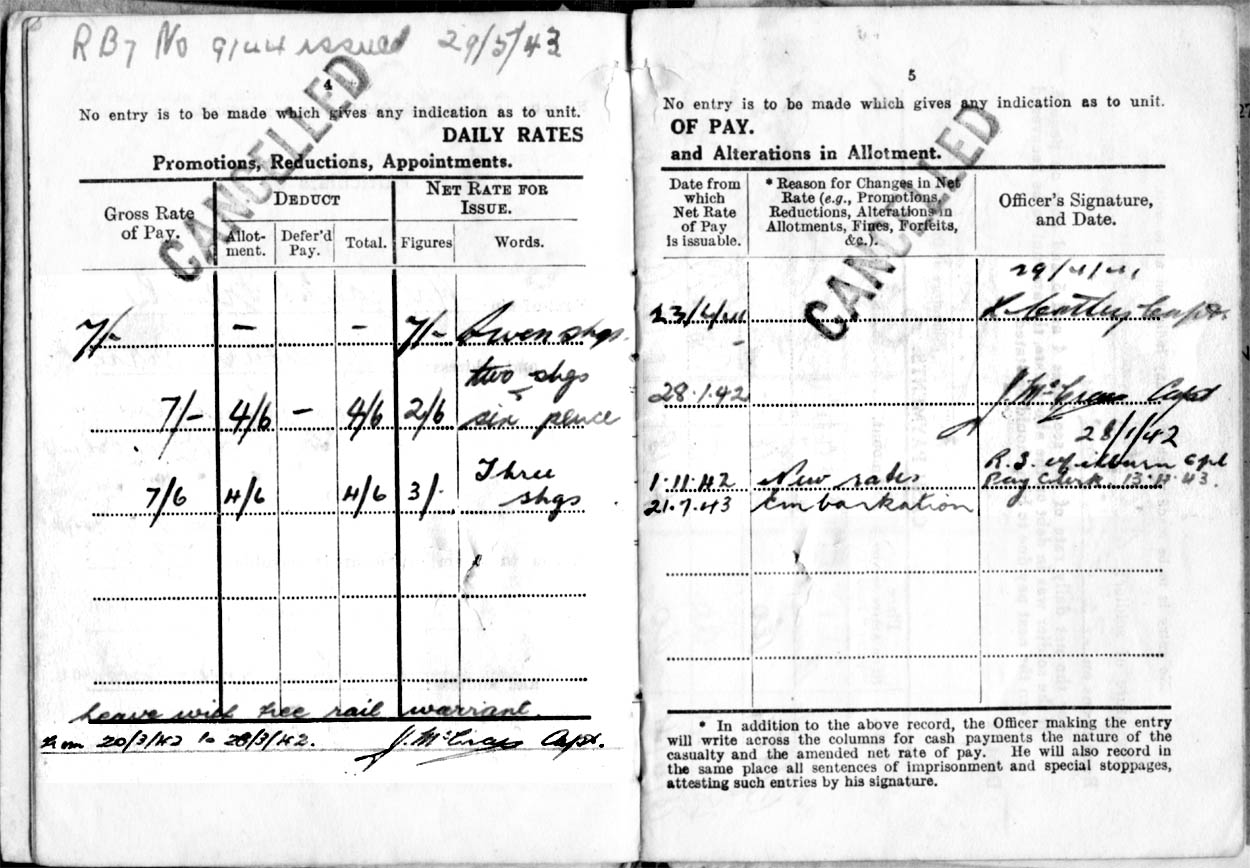 RB7 No issued 29/5/43
4
No entry is to be made which gives any indication as to unit.
DAILY RATES
Promotions, Reductions, Appointments.
CANCELLED
Gross Rate of Pay.
DEDUCT
NET RATE FOR ISSUE.
Allot-ment.
Defer'd Pay.
Total.
Figures
Words.
7/- – – 7/- Seven shgs.
two shgs
7/- 4/6 – 4/6 2/6 six pence
Three
7/6 4/6 4/6 3/- shgs
Leave with free rail warrant.
from 20/3/42 to 28/3/42. Capt.
5
No entry is to be made which gives any indication as to unit.
OF PAY.
and Alterations in Allotment.
CANCELLED
Date from which Net Rate of Pay is issuable.
* Reason for Changes in Net Rate (e.g., Promotions, Reductions, Alterations in Allotments, Fines, Forfeits, &c.).
Officer's Signature, and Date.
23/4/41 Capt.
28.1.42 Capt
28/1/42
R. S. Cpl
1.11.42 New rates Pay Clerk
21.7.43 Embarkation
* In addition to the above record, the Officer making the entry
will write across the columns for cash payments the nature of the
casualty and the amended net rate of pay. He will also record in
the same place all sentences of imprisonment and special stoppages,
attesting such entries by his signature.